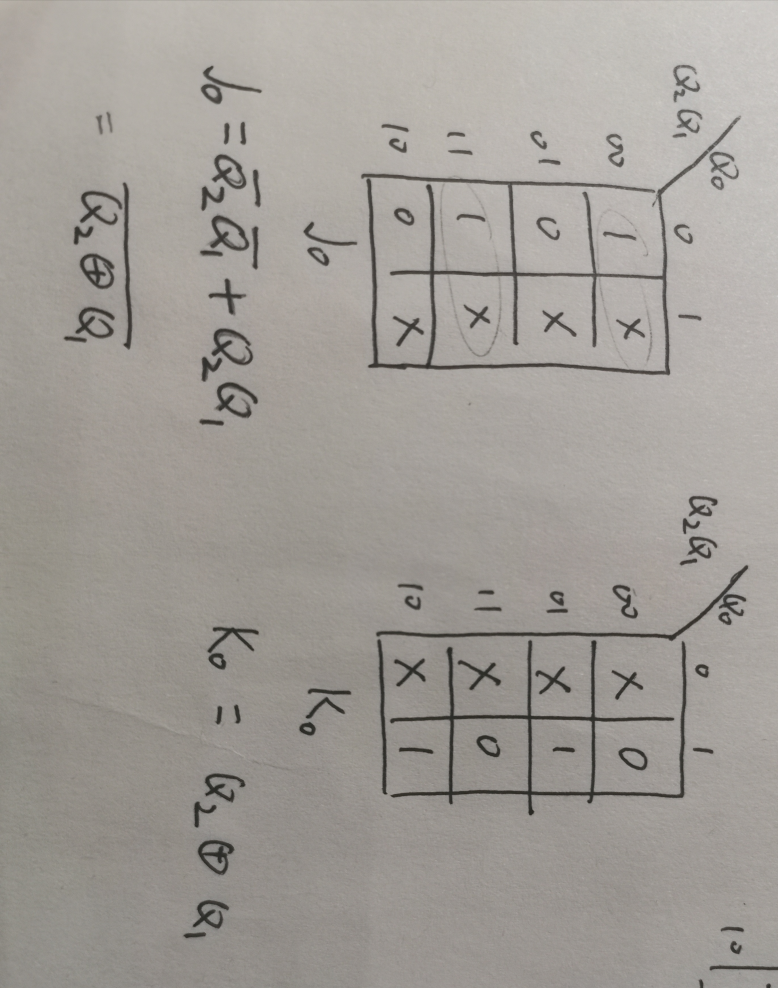 Q₂Q₁ Q₀ 0 1
00 1 X
01 0 X
11 1 X
10 0 X
J₀
J₀ = Q̅₂Q̅₁ + Q₂Q₁
= \overline{Q₂ ⊕ Q₁}
Q₂Q₁ Q₀ 0 1
00 X 0
01 X 1
11 X 0
10 X 1
K₀
K₀ = Q₂ ⊕ Q₁
10